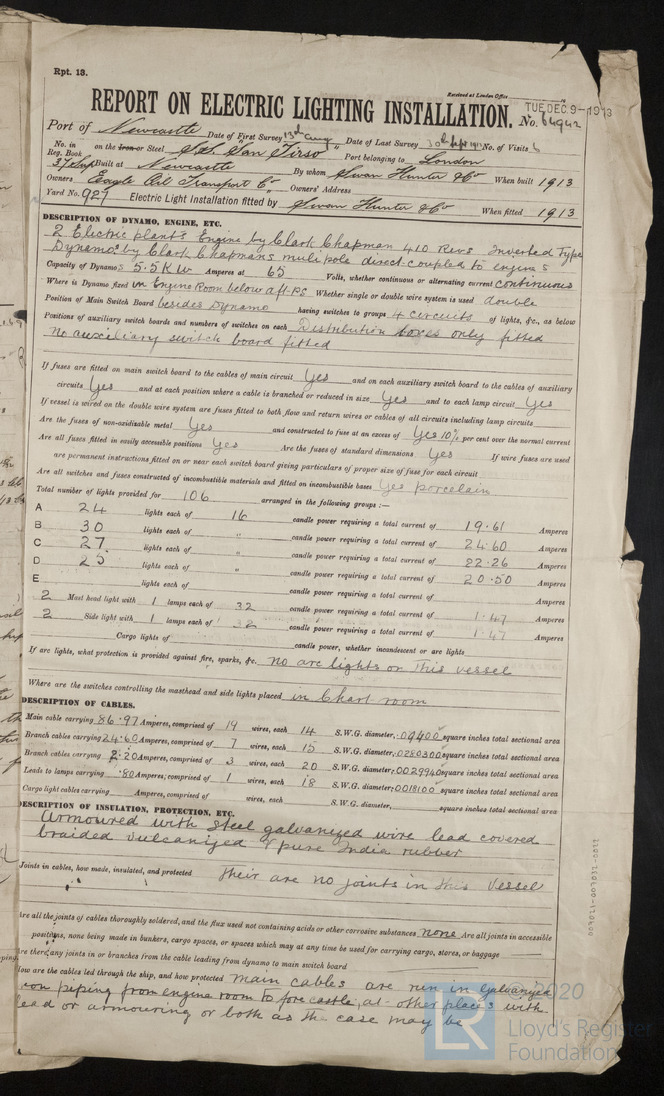 Rpt. 13.
Received at London Office
TUE. DEC. 9 - 1913
REPORT ON ELECTRIC LIGHTING INSTALLATION. No. 64942
Port of Newcastle Date of First Survey 13th Aug Date of Last Survey 30th Sept 1913 No. of Visits 6
No. in Reg. Book on the Iron or Steel S.S. San Tirso Port belonging to London
37 Sup Built at Newcastle By whom Swan Hunter & Co When built 1913
Owners Eagle Oil Transport Co Owners' Address
Yard No. 927 Electric Light Installation fitted by Swan Hunter & Co When fitted 1913
DESCRIPTION OF DYNAMO, ENGINE, ETC.
2 Electric plants Engine by Clark Chapman 410 Revs Inverted Type
Dynamos by Clark Chapmans mulipole direct coupled to engines
Capacity of Dynamos 5.5 KW Amperes at 65 Volts, whether continuous or alternating current continuous
Where is Dynamo fixed in Engine Room below aft PS Whether single or double wire system is used double
Position of Main Switch Board besides Dynamo having switches to groups 4 circuits of lights, &c., as below
Positions of auxiliary switch boards and numbers of switches on each Distribution boxes only fitted
No auxiliary switch board fitted
If fuses are fitted on main switch board to the cables of main circuit Yes and on each auxiliary switch board to the cables of auxiliary
circuits Yes and at each position where a cable is branched or reduced in size Yes and to each lamp circuit Yes
If vessel is wired on the double wire system are fuses fitted to both flow and return wires or cables of all circuits including lamp circuits
Are the fuses of non-oxidizable metal Yes and constructed to fuse at an excess of Yes 10% per cent over the normal current
Are all fuses fitted in easily accessible positions Yes Are the fuses of standard dimensions Yes If wire fuses are used
are permanent instructions fitted on or near each switch board giving particulars of proper size of fuse for each circuit
Are all switches and fuses constructed of incombustible materials and fitted on incombustible bases Yes porcelain
Total number of lights provided for 106 arranged in the following groups :—
A 24 lights each of 16 candle power requiring a total current of 19.61 Amperes
B 30 lights each of " candle power requiring a total current of 24.60 Amperes
C 27 lights each of " candle power requiring a total current of 22.26 Amperes
D 25 lights each of " candle power requiring a total current of 20.50 Amperes
E lights each of candle power requiring a total current of Amperes
2 Mast head light with 1 lamps each of 32 candle power requiring a total current of 1.47 Amperes
2 Side light with 1 lamps each of 32 candle power requiring a total current of 1.47 Amperes
Cargo lights of candle power, whether incandescent or are lights
If arc lights, what protection is provided against fire, sparks, &c. no arc lights on this vessel
Where are the switches controlling the masthead and side lights placed in Chart room
DESCRIPTION OF CABLES.
Main cable carrying 86.97 Amperes, comprised of 19 wires, each 14 S.W.G. diameter, .09400 square inches total sectional area
Branch cables carrying 24.60 Amperes, comprised of 7 wires, each 15 S.W.G. diameter, .0280300 square inches total sectional area
Branch cables carrying 2.20 Amperes, comprised of 3 wires, each 20 S.W.G. diameter, .0029940 square inches total sectional area
Leads to lamps carrying .80 Amperes, comprised of 1 wires, each 18 S.W.G. diameter, .0018100 square inches total sectional area
Cargo light cables carrying Amperes, comprised of wires, each S.W.G. diameter, square inches total sectional area
DESCRIPTION OF INSULATION, PROTECTION, ETC.
Armoured with steel galvanized wire lead covered
braided vulcanized & pure India rubber
Joints in cables, how made, insulated, and protected Their are no joints in this Vessel
Are all the joints of cables thoroughly soldered, and the flux used not containing acids or other corrosive substances none Are all joints in accessible
positions, none being made in bunkers, cargo spaces, or spaces which may at any time be used for carrying cargo, stores, or baggage
Are there any joints in or branches from the cable leading from dynamo to main switch board
How are the cables led through the ship, and how protected main cables are run in galvanized
iron piping from engine room to forecastle, at other places with
lead or armouring or both as the case may be
009021-009031-0099
© 2020
LR
Lloyd's Register
Foundation